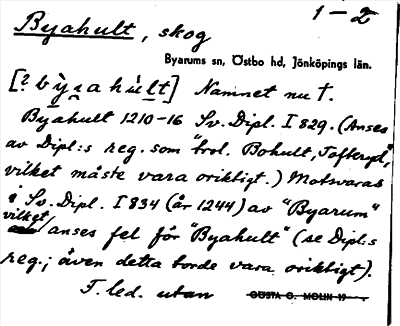 1-2
Byahult, skog
Byarums sn, Östbo hd, Jönköpings län.
Namnet nu †.
Byahult 1210-16 Sv. Dipl. I 829. (Anses
av Dipl:s reg. som "trol. Bohult,
vilket måste vara oriktigt.) Motsvaras
i Sv. Dipl. I 834 (år 1244) av "Byarum"
vilket anses fel för "Byahult" (se Dipl:s
reg.; även detta torde vara oriktigt).
F. led. utan
GÖSTA G. MOLIN 19